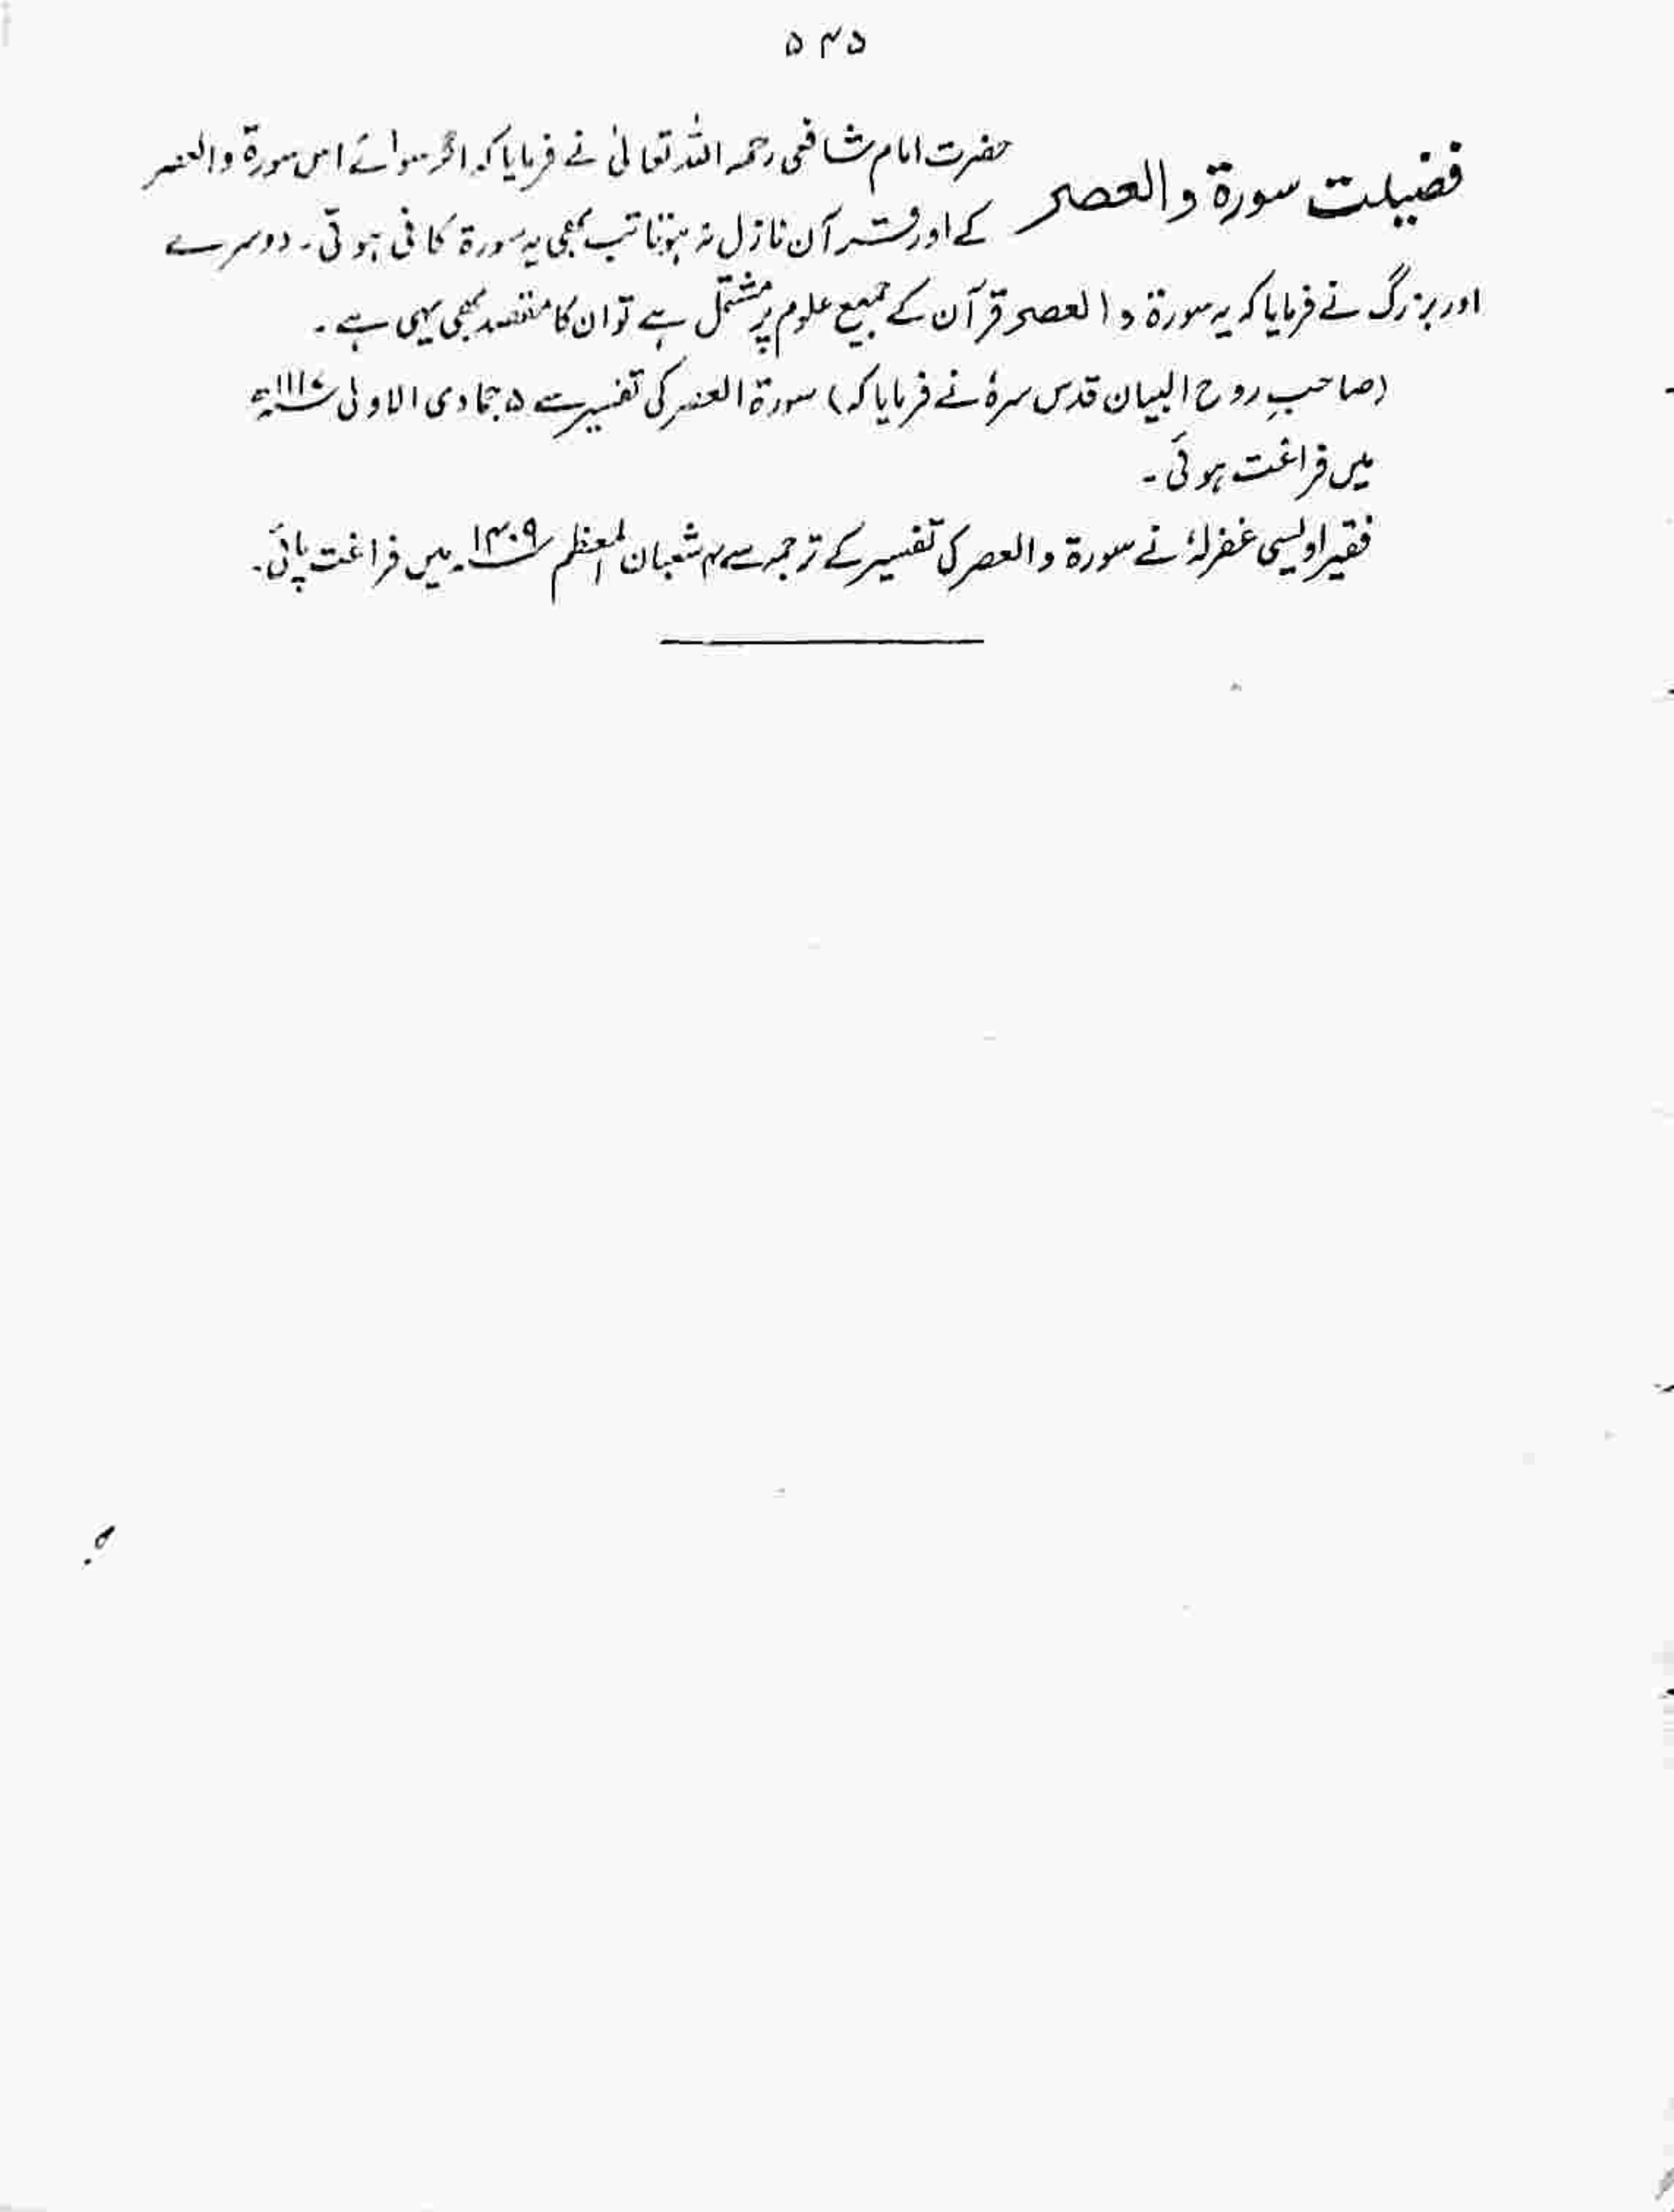 ۵۴۵
فضیلت سورۃ والعصر
حضرت امام شافعی رحمہ اللہ تعالیٰ نے فرمایا کہ اگر سوائے اس سورۃ والعصر
کے اور قرآن نازل نہ ہوتا تب بھی یہ سورۃ کافی ہوتی۔ دوسرے
اور بزرگ نے فرمایا کہ یہ سورۃ والعصر قرآن کے جمیع علوم پر مشتمل ہے تو ان کا مقصد بھی یہی ہے۔
(صاحبِ روح البیان قدس سرہٗ نے فرمایا کہ) سورۃ العصر کی تفسیر سے ۵ جمادی الاولی
میں فراغت ہوئی۔
فقیر اویسی غفرلہٗ نے سورۃ والعصر کی تفسیر کے ترجمہ سے ۴ شعبان المعظم ۱۴۰۹ میں فراغت پائی۔